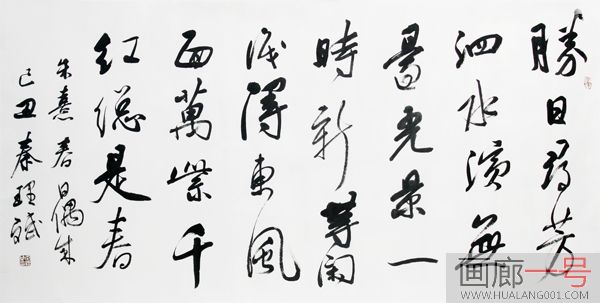 勝日尋芳
泗水濱無
邊光景一
時新等閑
識得東風
面萬紫千
紅總是春
朱熹春日偶成
己丑秦理斌
画廊一号
WWW.HUALANG001.COM